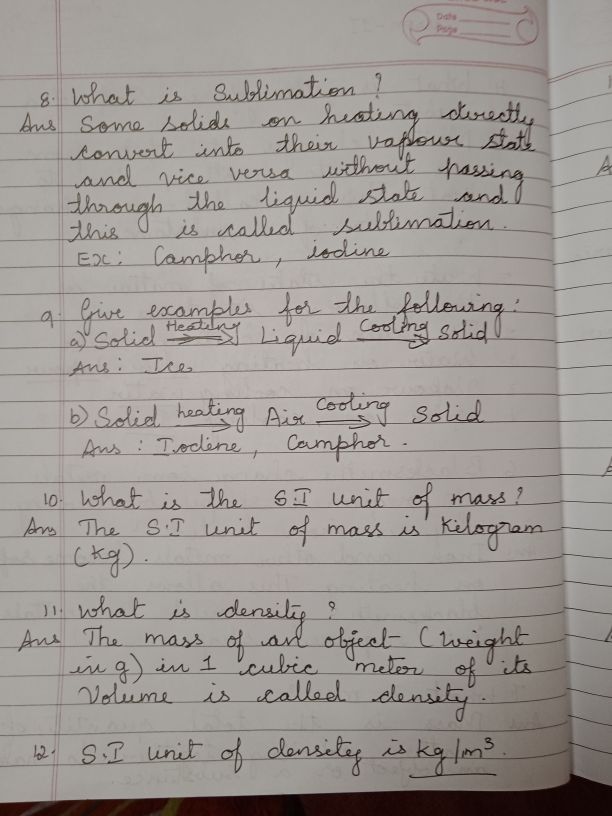 Date
Page
8. What is Sublimation?
Ans Some solids on heating directly
convert into their vapour state
and vice versa without passing
through the liquid state and
this is called sublimation.
Ex: Camphor, iodine
9. Give examples for the following:
a) Solid Heating Liquid Cooling Solid
Ans: Ice
b) Solid heating Air Cooling Solid
Ans: Iodine, Camphor.
10. What is the S.I unit of mass?
Ans The S.I unit of mass is Kilogram
(kg).
11. What is density?
Ans The mass of an object (weight
in g) in 1 cubic meter of its
Volume is called density.
12. S.I unit of density is kg/m³.